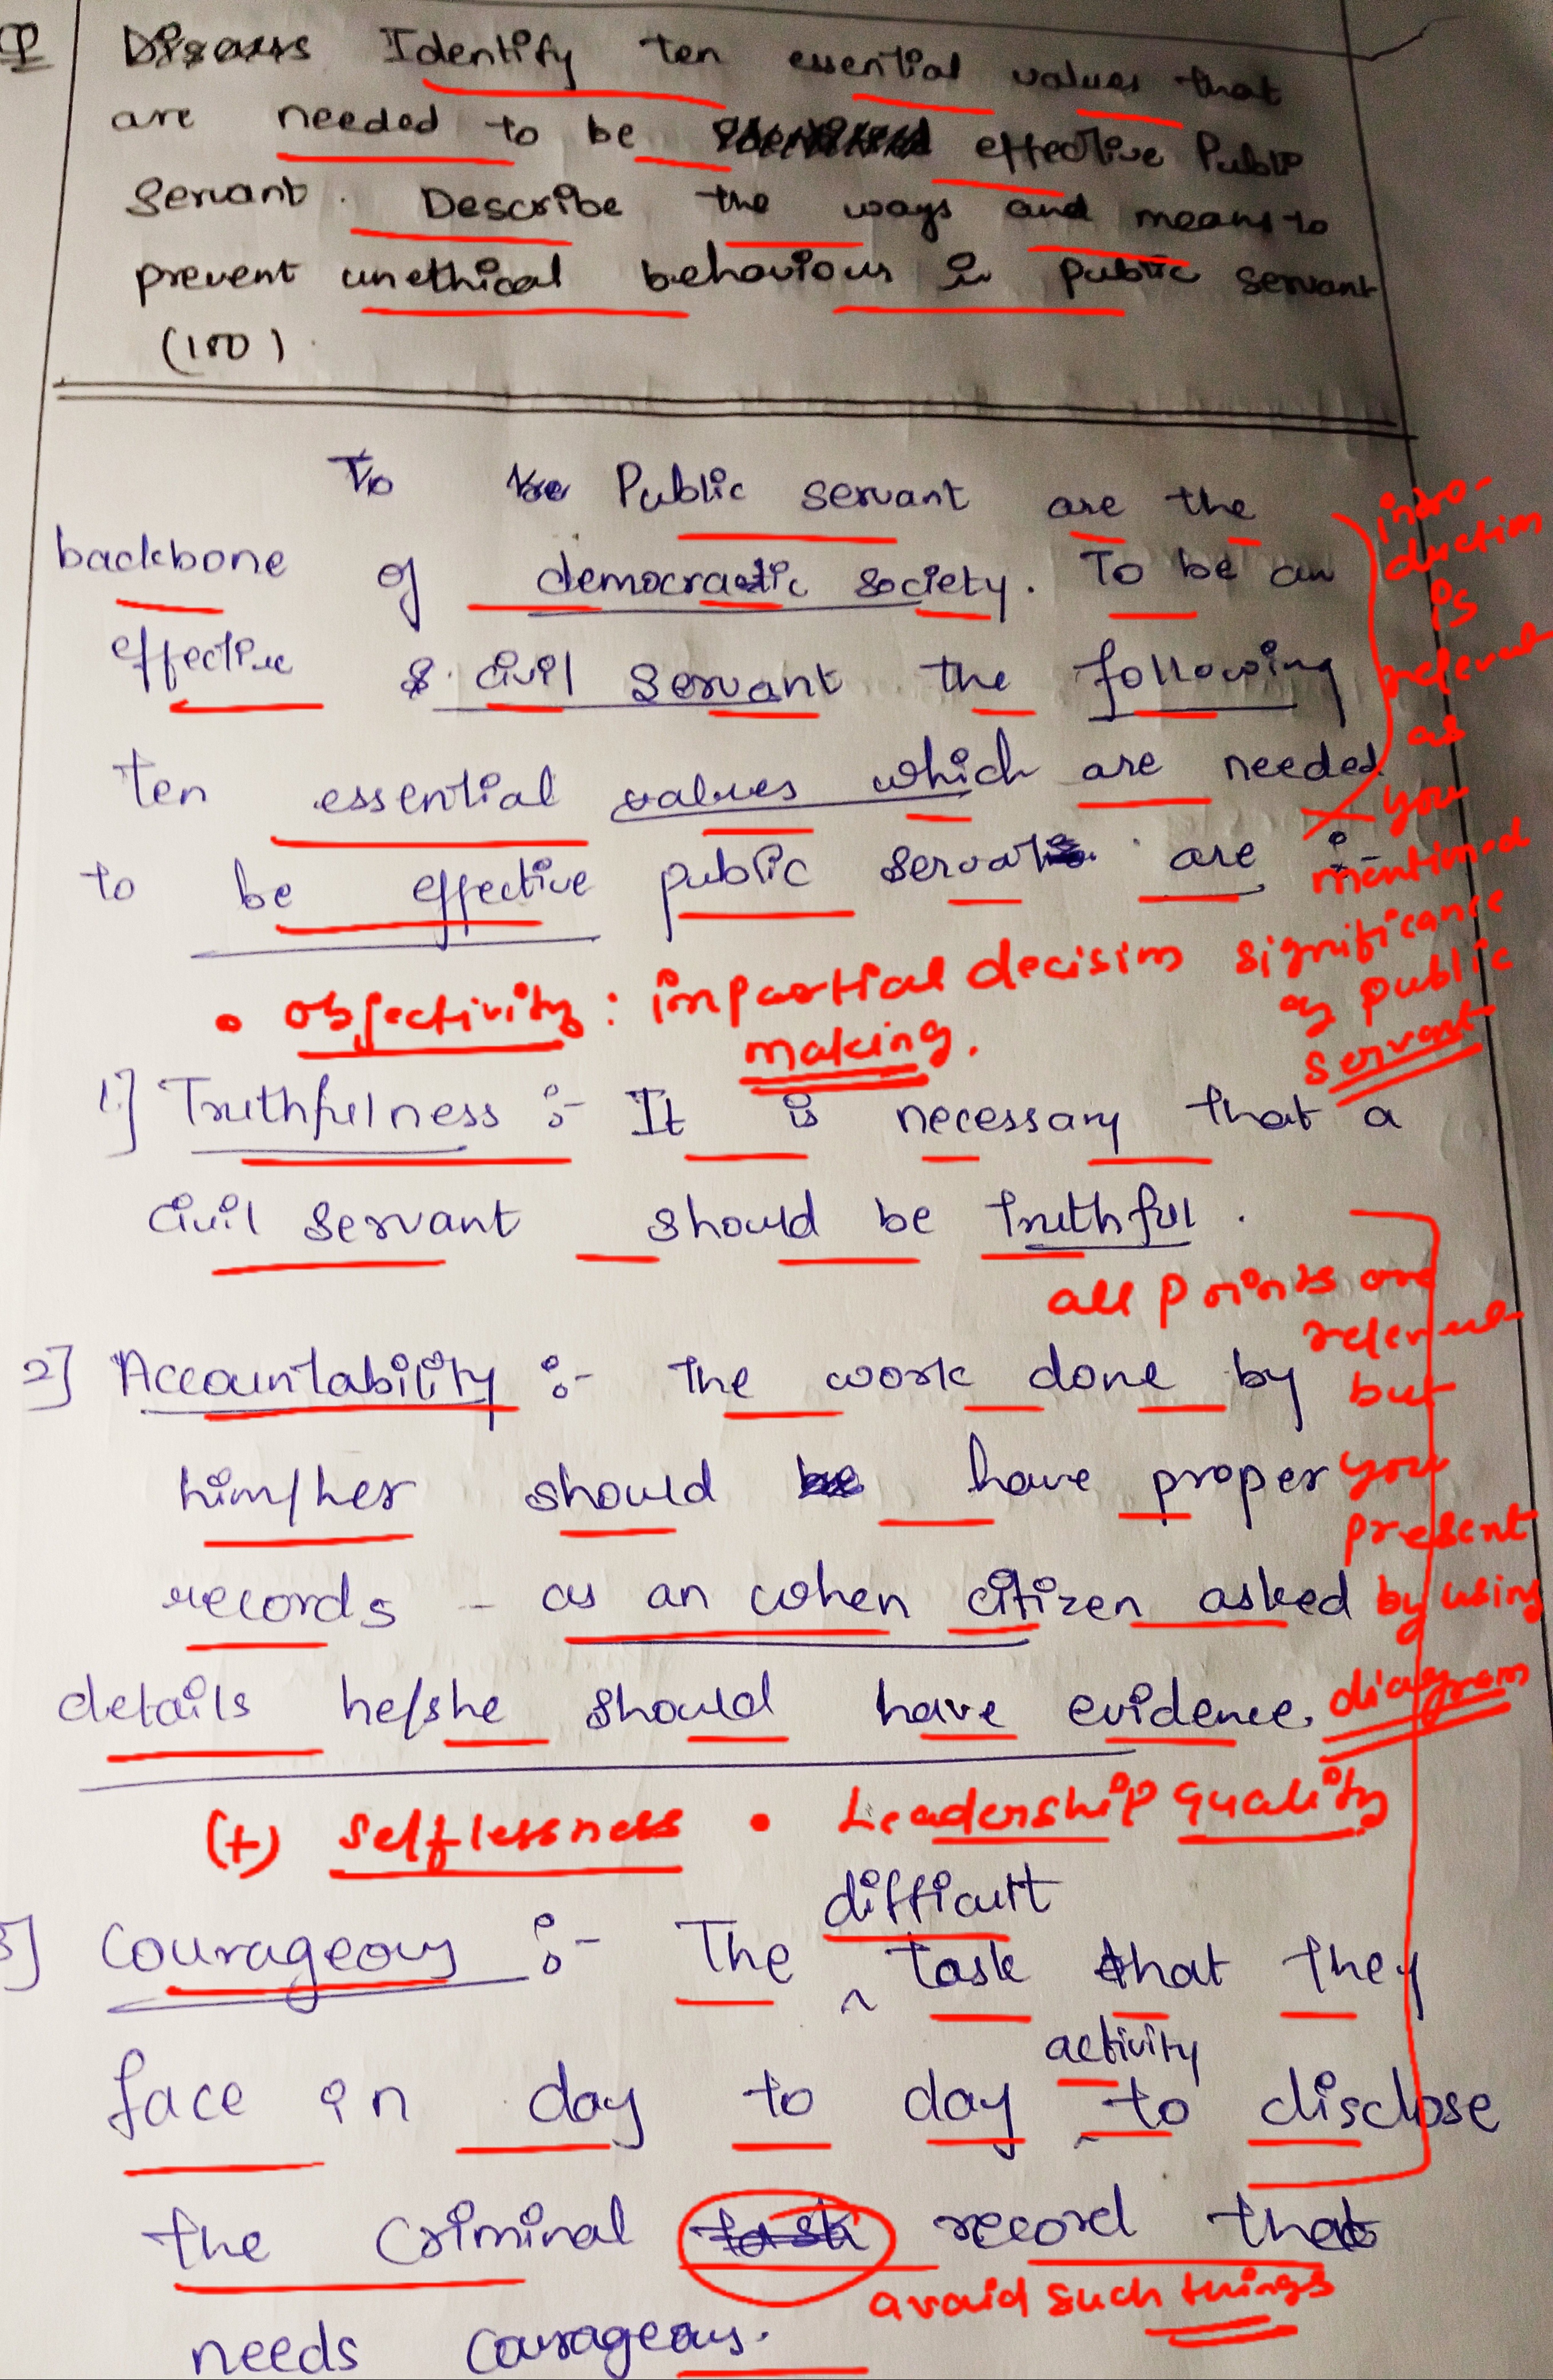 Q Discuss Identify ten essential values that
are needed to be effective Public
Servant. Describe the ways and means to
prevent unethical behaviour in public servant
(150).
To be Public servant are the
backbone of democratic society. To be an
effective & civil servant the following
ten essential values which are needed
to be effective public servat are :-
introduction is relevant as you mentioned significance of public servant
• objectivity: impartial decision
making.
1.] Truthfulness :- It is necessary that a
civil servant should be truthful.
all points are relevent but you present by using diagram
2] Accountability :- The work done by
him/her should be have proper
records - as an when citizen asked
details he/she should have evidence.
(+) selflessness • Leadership quality
3] Courageous :- The difficult task that they
face in day to day activity to disclose
the criminal task record that
avoid such things
needs courageous.